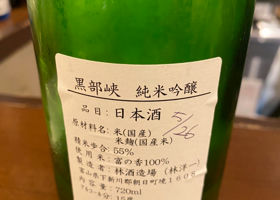 黒部峡 純米吟醸
品目:日本酒
5/26
原材料名:米(国産)
米麹(国産米)
精米歩合:55%
使用米:富の香100%
製造者:林酒造場(林洋一)
富山県下新川郡朝日町境1608
内容量:720ml
アルコール分:15度